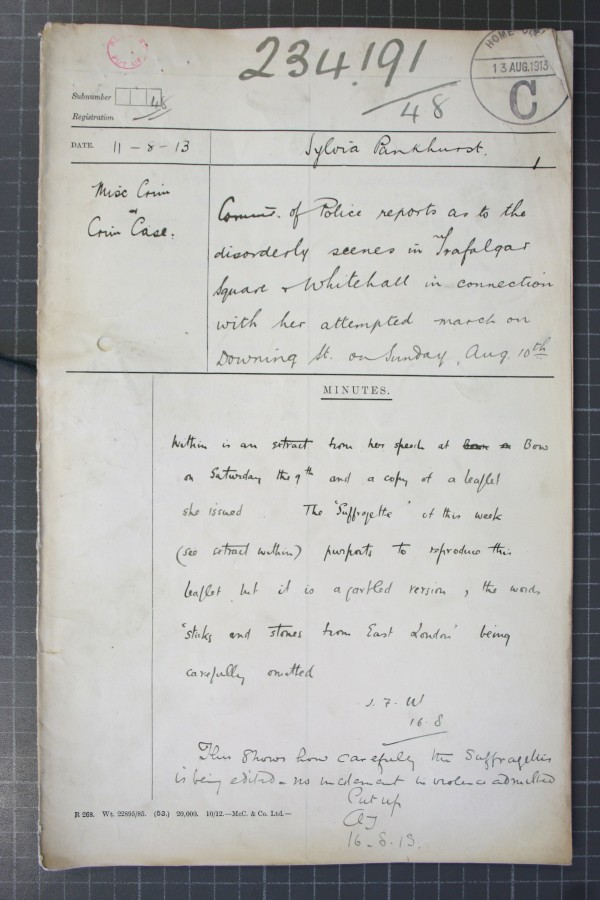 234191
/48
HOME OFFICE
13 AUG.1913
C
Subnumber 48
Registration
DATE. 11-8-13
Sylvia Pankhurst.
Misc Crim
Crim Case.
Commr. of Police reports as to the
disorderly scenes in Trafalgar
Square & Whitehall in connection
with her attempted march on
Downing St. on Sunday, Aug. 10th
MINUTES.
Within is an extract from her speech at Bow
on Saturday the 9th and a copy of a leaflet
she issued. The "Suffragette" of this week
(see extract within) purports to reproduce this
leaflet but it is a garbled version, the words
"sticks and stones from East London" being
carefully omitted
J. F. W
16.8
This shows how carefully the Suffragette
is being edited - no incitement to violence admitted
Put up
16.8.13.
R 268. Wt. 22895/85. (53.) 20,000. 10/12.—McC. & Co. Ltd.—